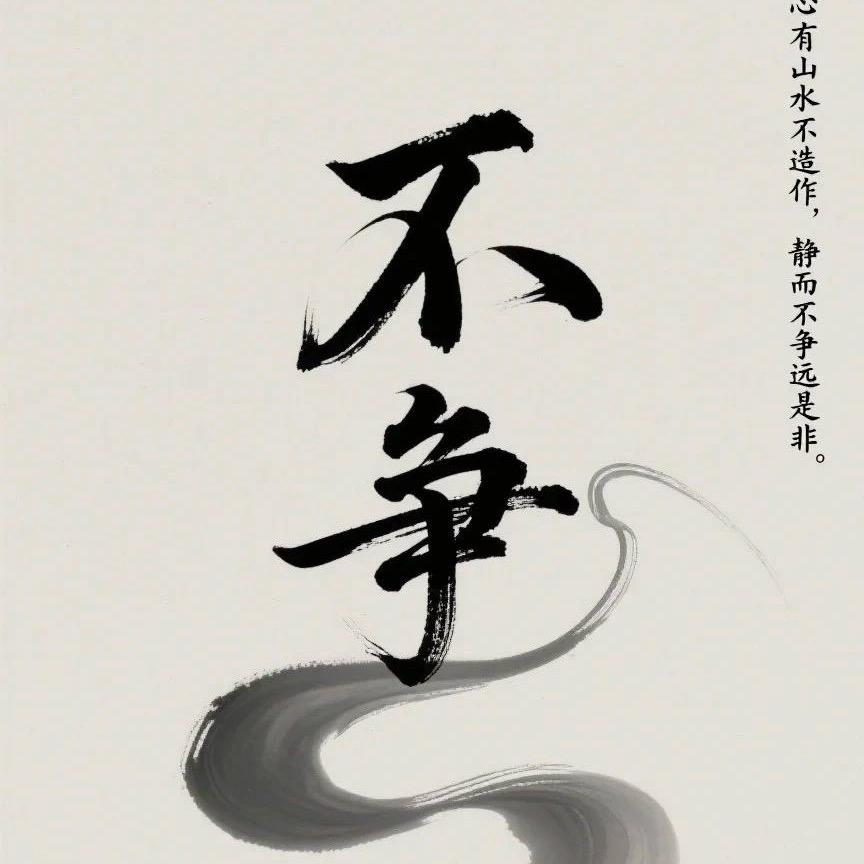 不争
心有山水不造作，静而不争远是非。